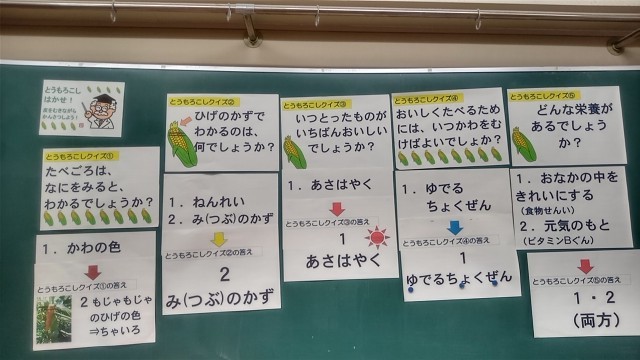 とうもろこし
はかせ！
皮をむきながら
かんさつしよう！
とうもろこしクイズ①
たべごろは、
なにをみると、
わかるでしょうか？
1．かわの色
とうもろこしクイズ①の答え
2 もじゃもじゃ
のひげの色
⇒ちゃいろ
とうもろこしクイズ②
ひげのかずで
わかるのは、
何でしょうか？
1．ねんれい
2．み(つぶ)のかず
とうもろこしクイズ②の答え
2
み(つぶ)のかず
とうもろこしクイズ③
いつとったものが
いちばんおいしい
でしょうか？
1．あさはやく
とうもろこしクイズ③の答え
1
あさはやく
とうもろこしクイズ④
おいしくたべるため
には、いつかわをむ
けばよいでしょか？
1．ゆでる
ちょくぜん
とうもろこしクイズ④の答え
1
ゆでるちょくぜん
とうもろこしクイズ⑤
どんな栄養が
あるでしょう
か？
1．おなかの中を
きれいにする
(食物せんい)
2．元気のもと
(ビタミンBぐん)
とうもろこしクイズ⑤の答え
1・2
(両方)